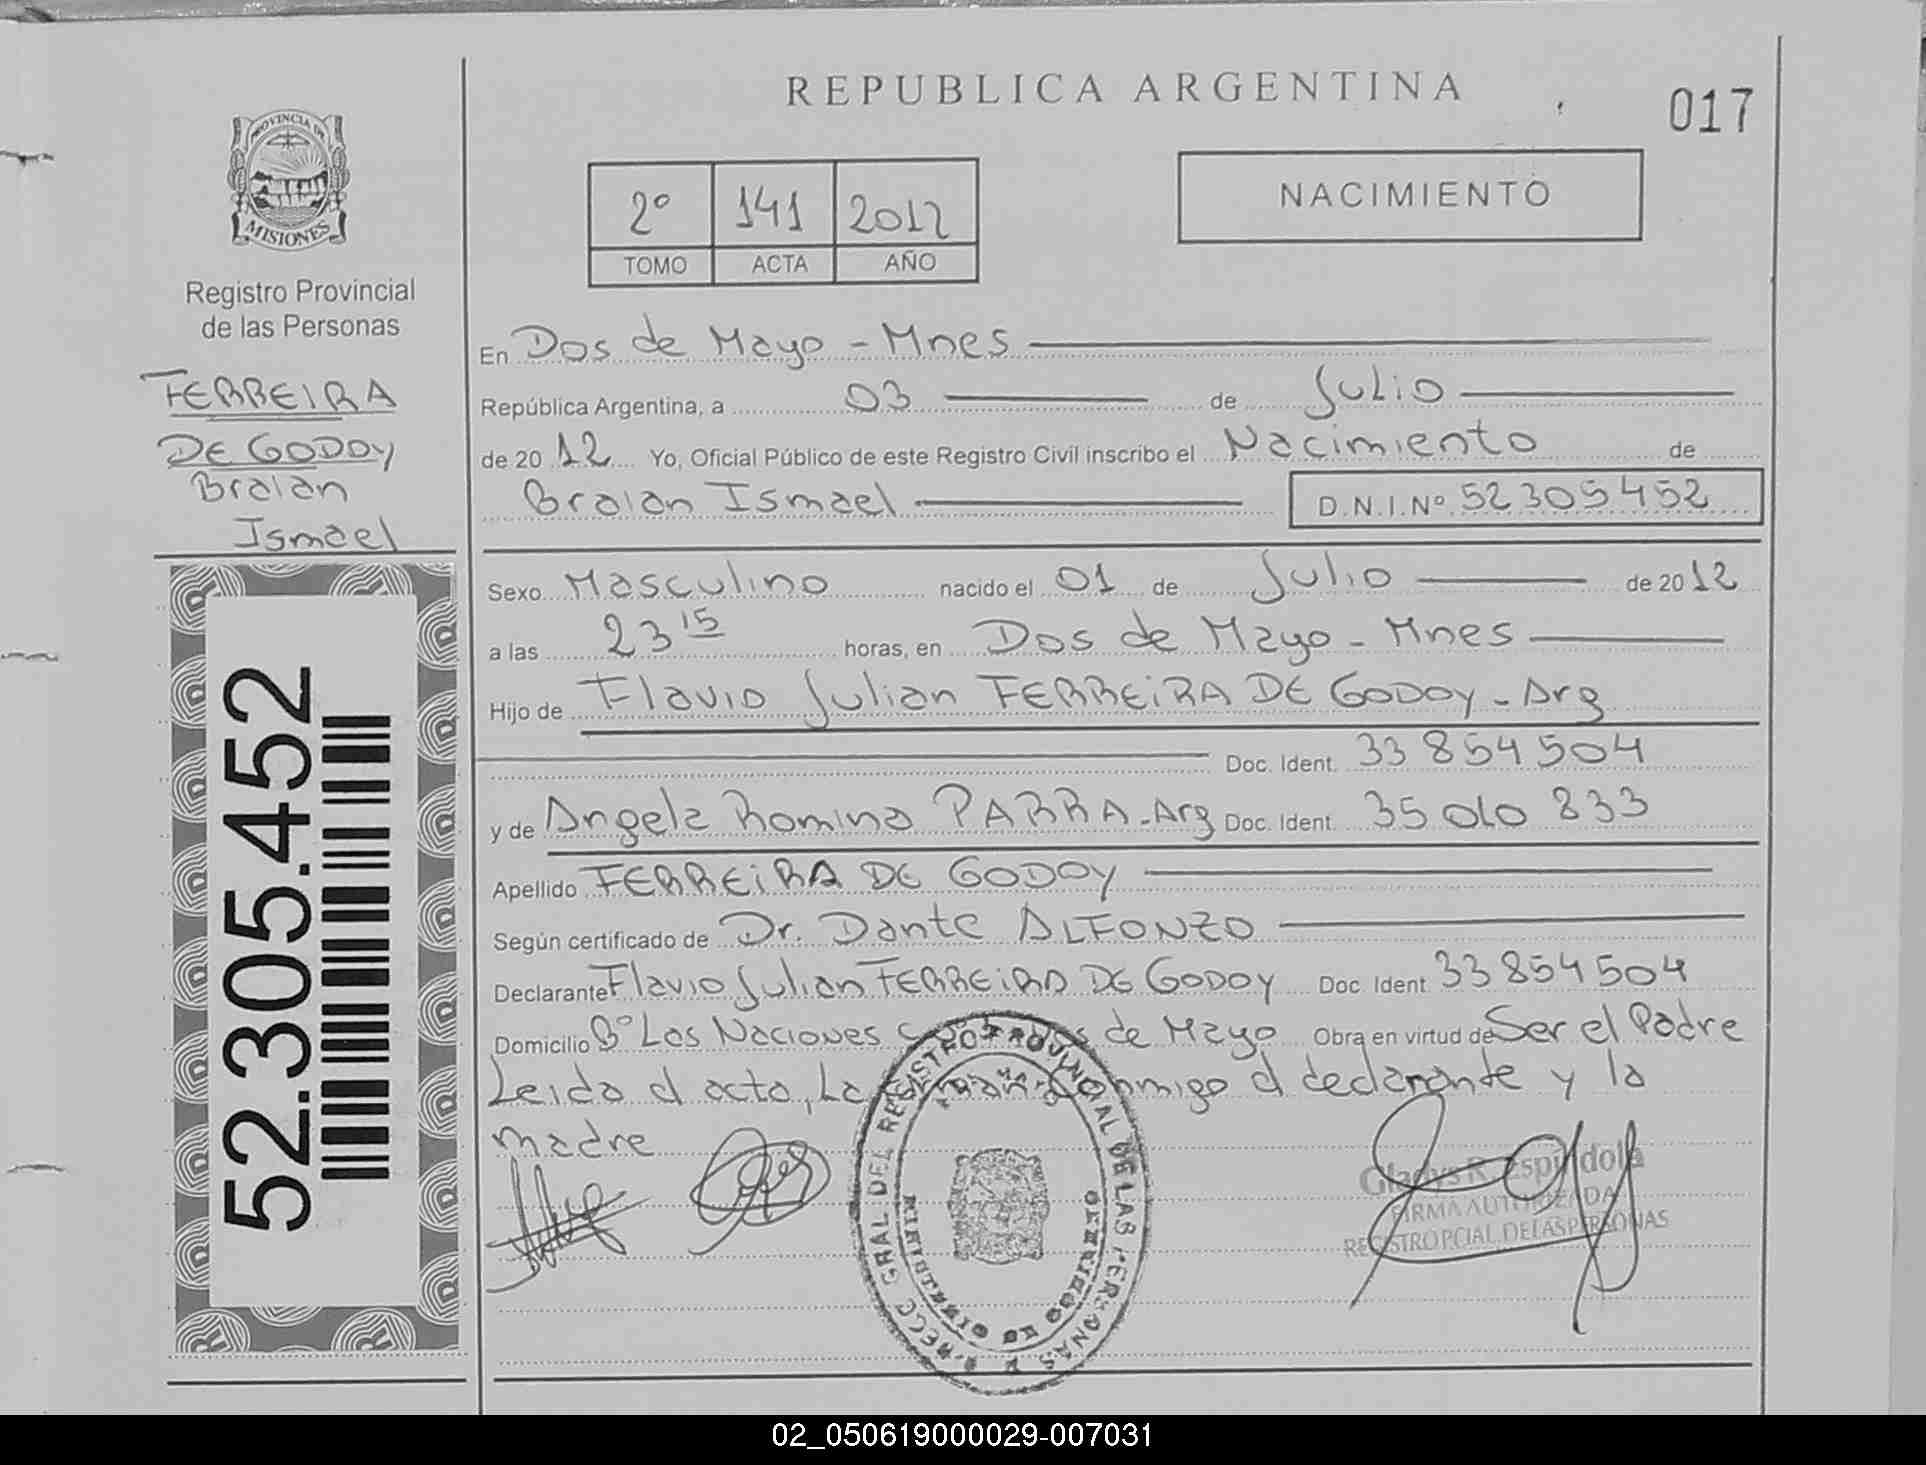 REPUBLICA ARGENTINA
017
PROVINCIA DE
MISIONES
Registro Provincial
de las Personas
FERREIRA
DE GODOY
Braian
Ismael
52.305.452
2º 141 2012
TOMO ACTA AÑO
NACIMIENTO
En Dos de Mayo - Mnes
República Argentina, a 03 de Julio
de 20 12 Yo, Oficial Público de este Registro Civil inscribo el Nacimiento de
Braian Ismael D.N.I.Nº 52 305 452
Sexo Masculino nacido el 01 de Julio de 20 12
a las 23 15 horas, en Dos de Mayo - Mnes
Hijo de Flavio Julian FERREIRA DE GODOY - Arg
Doc. Ident. 33 854 504
y de Angela Romina PARRA - Arg Doc. Ident. 35 010 833
Apellido FERREIRA DE GODOY
Según certificado de Dr. Dante ALFONZO
Declarante Flavio Julian FERREIRA DE GODOY Doc. Ident. 33 854 504
Domicilio Bº Las Naciones de Mayo Obra en virtud de Ser el Padre
Leida el acta, La conmigo el declarante y la
madre
DIRECC GRAL DEL REGISTRO PROVINCIAL DE LAS PERSONAS
MINISTERIO DE GOBIERNO
Gladys R. Espindola
FIRMA AUTORIZADA
REGISTRO PCIAL. DE LAS PERSONAS
02_050619000029-007031